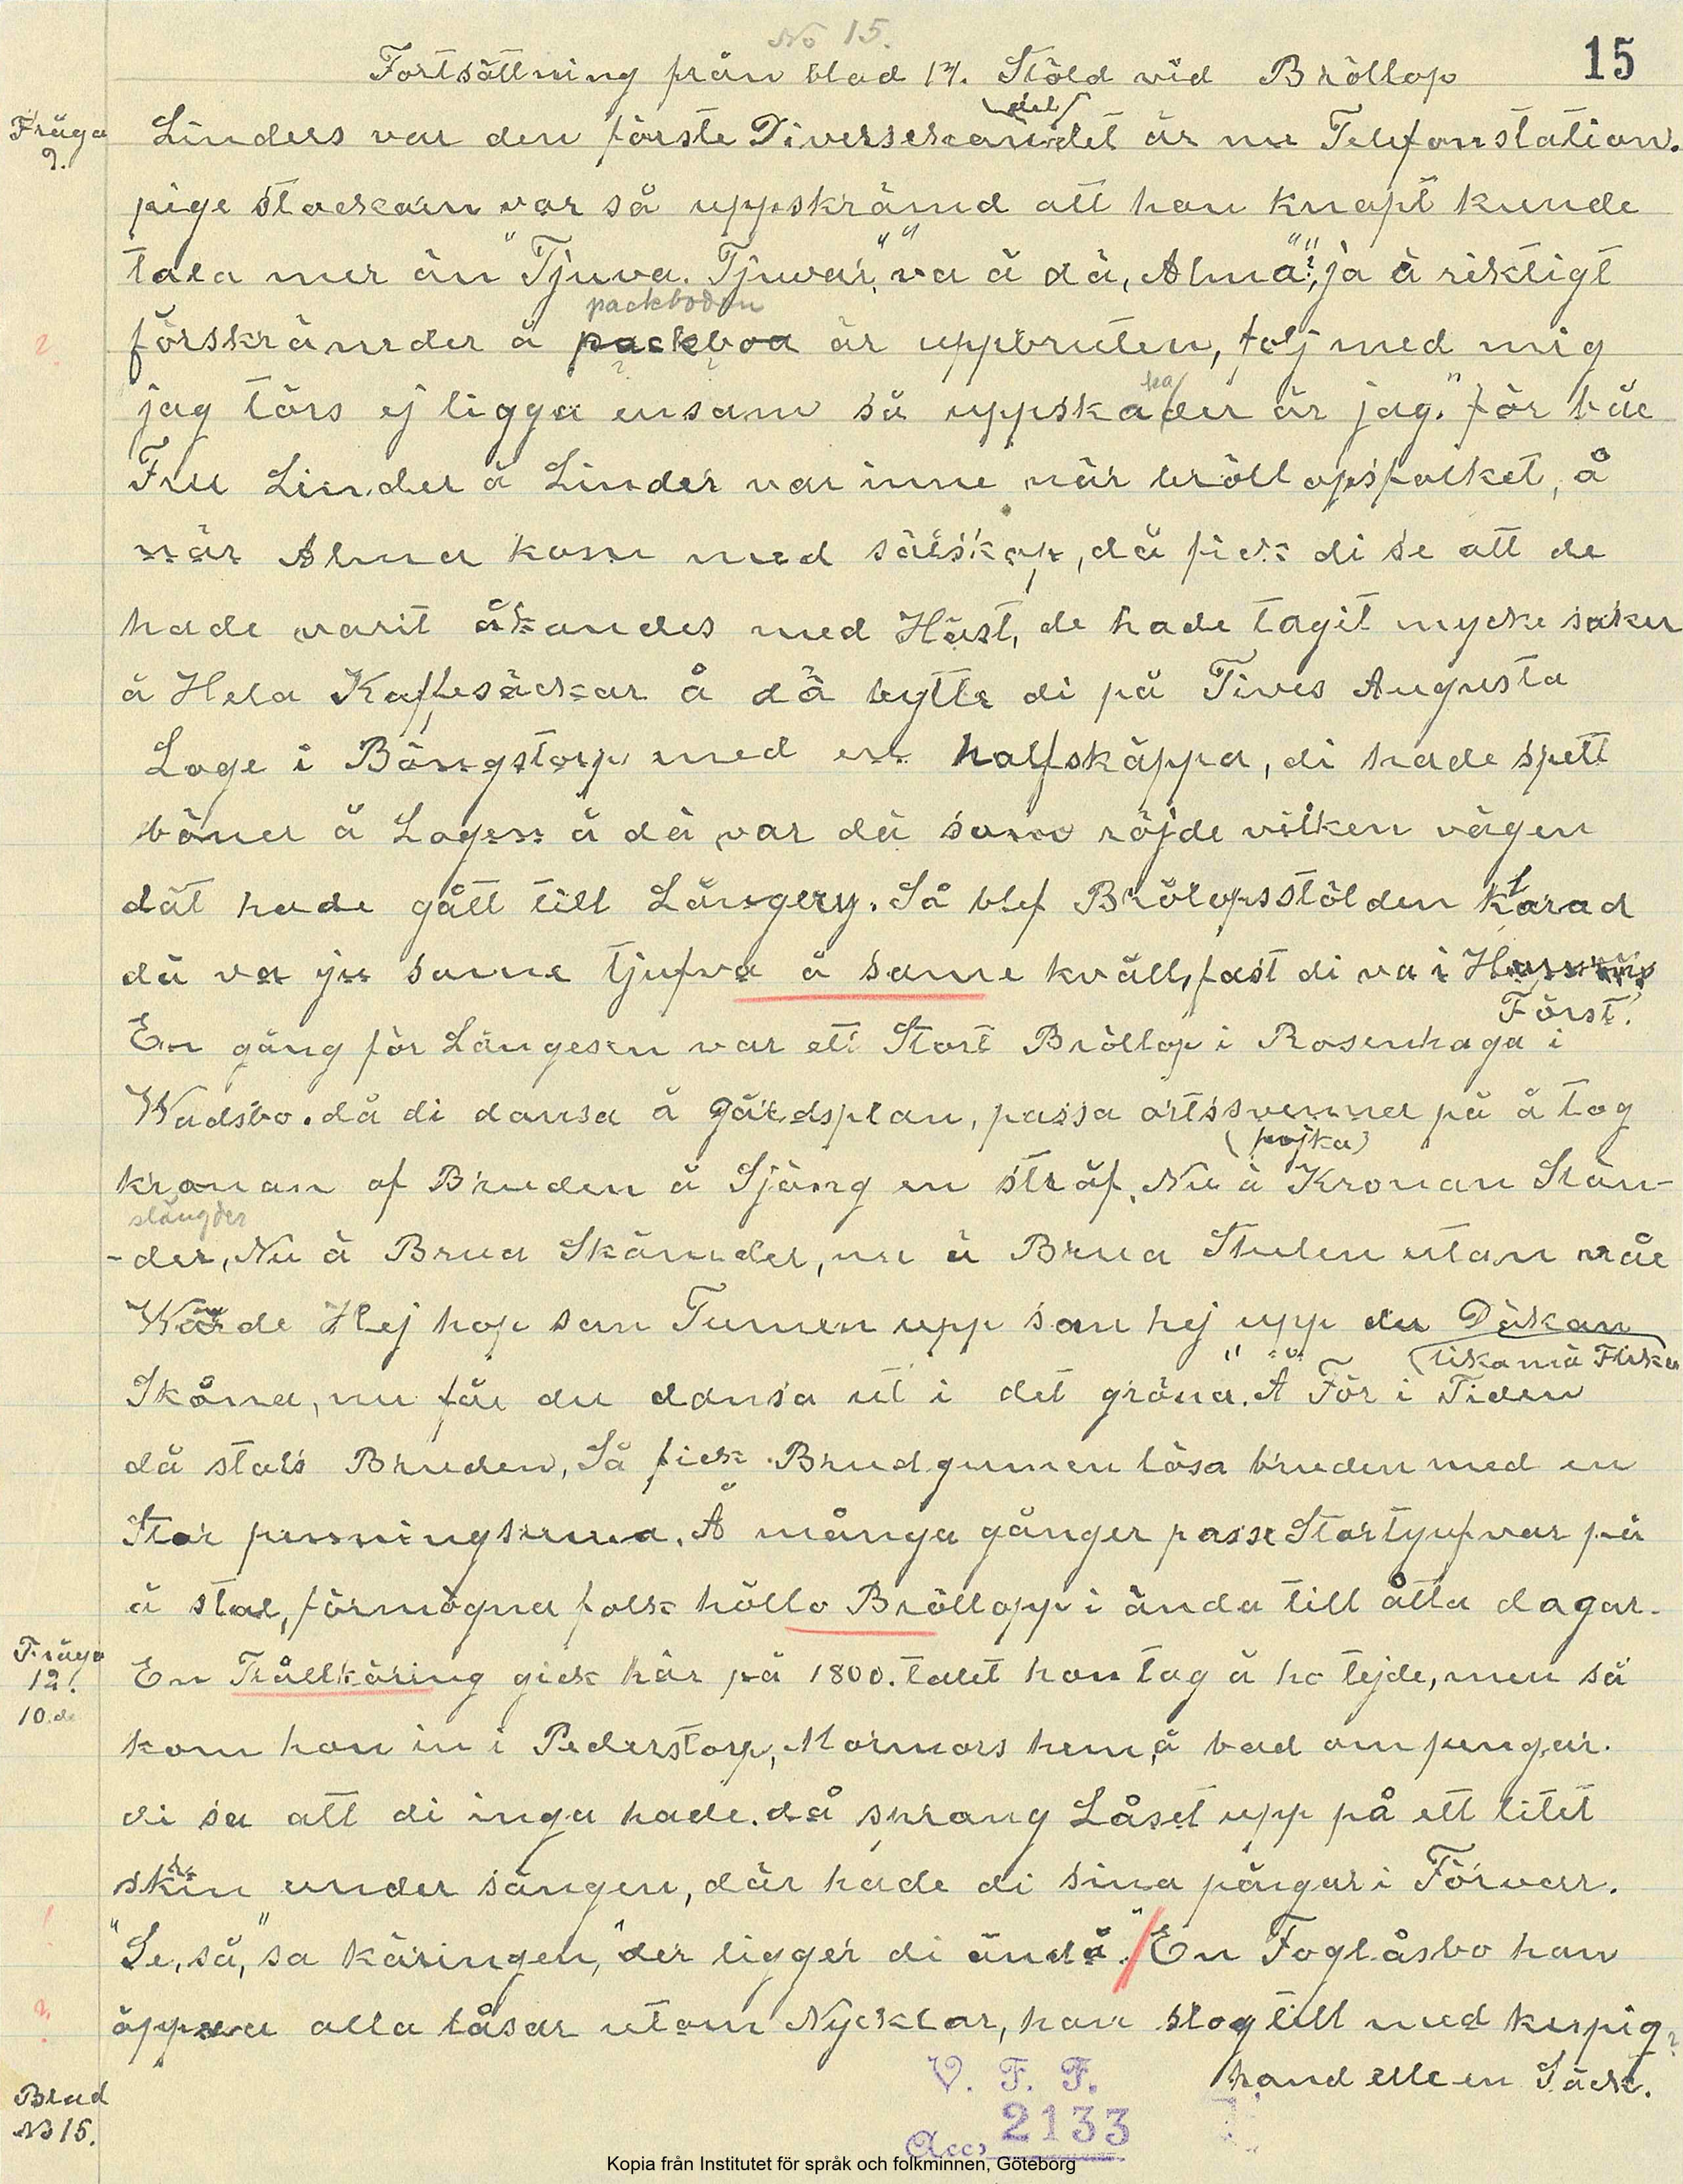 No 15.
15
Fortsättning från blad 14. Stöld vid Bröllop
Fråga 9.
(det)
Linders var den förste Diversekandet är nu Telefonstation.
pige stackarn var så uppskrämd att hon knapt kunde
tala mer än "Tjuva. Tjuvar", "va ä dä, Alma"? "ja ä riktigt
packboden
förskrämder å packboa är uppbruten, följ med mig
ka
jag törs ej ligga ensam så uppskader är jag." för båe
Fru Linder å Linder var inne när bröllopsfolket, å
när Alma kom med sälskap, då fick di se att de
hade varit åkandes med Häst, de hade tagit mycke saker
å Hela Kaffesäckar å då bytte di på Tives Augusta
Loge i Bängstorp med en halfskäppa, di hade spett
böner å Logen å dä var dä som röjde vilken vägen
dät hade gått till Långery. Så blef Brölopsstölden klarad
dä va ju same tjufva å same kväll, fast di va i
Först.
En gång för Längesen var ett Stort Bröllop i Rosenhaga i
Wadsbo. då di dansa å gårdsplan, passa ortssvenna på å tog
(pojka)
kronan af Bruden å Sjöng en sträf, Nu ä Kronan Stän-
slängder
-der, Nu ä Brua Skämder, nu ä Brua Stulen utan råe
Wärde Hej hop san Tumen upp san hej upp du Däkan
(lika mä Flicka
Skåna, nu får du dansa ut i det gröna." Å "För i Tiden
då stals Bruden, Så fick Brudgumen lösa bruden med en
Stor penningsuma. Å många gånger passe Stortjufvar på
å stal, förmögna folk höllo Bröllopp i ända till åtta dagar.
Fråga 12.
10.de
En Trållkäring gick här på 1800.talet hon tog å ho tejde, men så
kom hon in i Pederstorp, Mormors hem, å bad om pengar.
di sa att di inga hade. då sprang Låset upp på ett litet
skrin under sängen, där hade di sina pängar i Förvarr.
"Se, så," sa käringen, "der ligger di ändå." En Foglåsbo han
öppna alla låsar utom Nycklar, han slog till med kerpig
hand elle en Säck.
Blad
No 15.
V. F. F.
Acc: 2133
Kopia från Institutet för språk och folkminnen, Göteborg